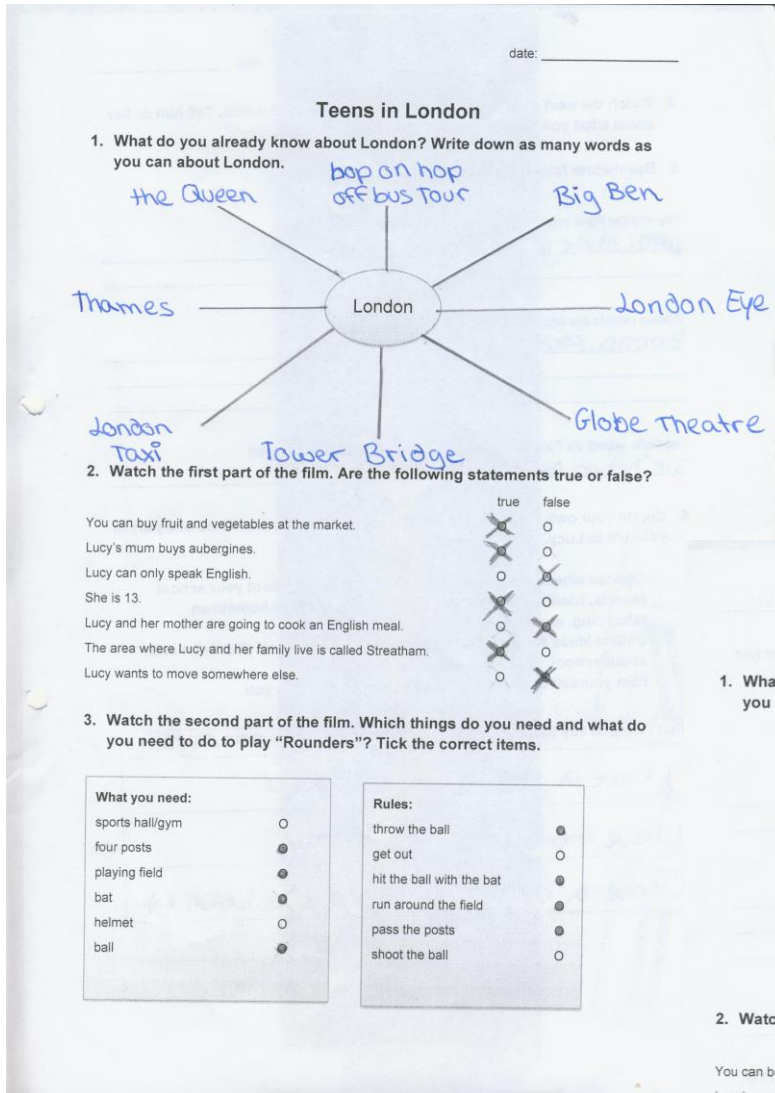 date:
Teens in London
1. What do you already know about London? Write down as many words as
you can about London.
the Queen
bop on hop
off bus Tour
Big Ben
Thames
London
London Eye
London
Taxi
Tower Bridge
Globe Theatre
2. Watch the first part of the film. Are the following statements true or false?
true false
You can buy fruit and vegetables at the market.
Lucy's mum buys aubergines.
Lucy can only speak English.
She is 13.
Lucy and her mother are going to cook an English meal.
The area where Lucy and her family live is called Streatham.
Lucy wants to move somewhere else.
3. Watch the second part of the film. Which things do you need and what do
you need to do to play “Rounders”? Tick the correct items.
What you need:
sports hall/gym
four posts
playing field
bat
helmet
ball
Rules:
throw the ball
get out
hit the ball with the bat
run around the field
pass the posts
shoot the ball
1. Wha
you
2. Watc
You can b